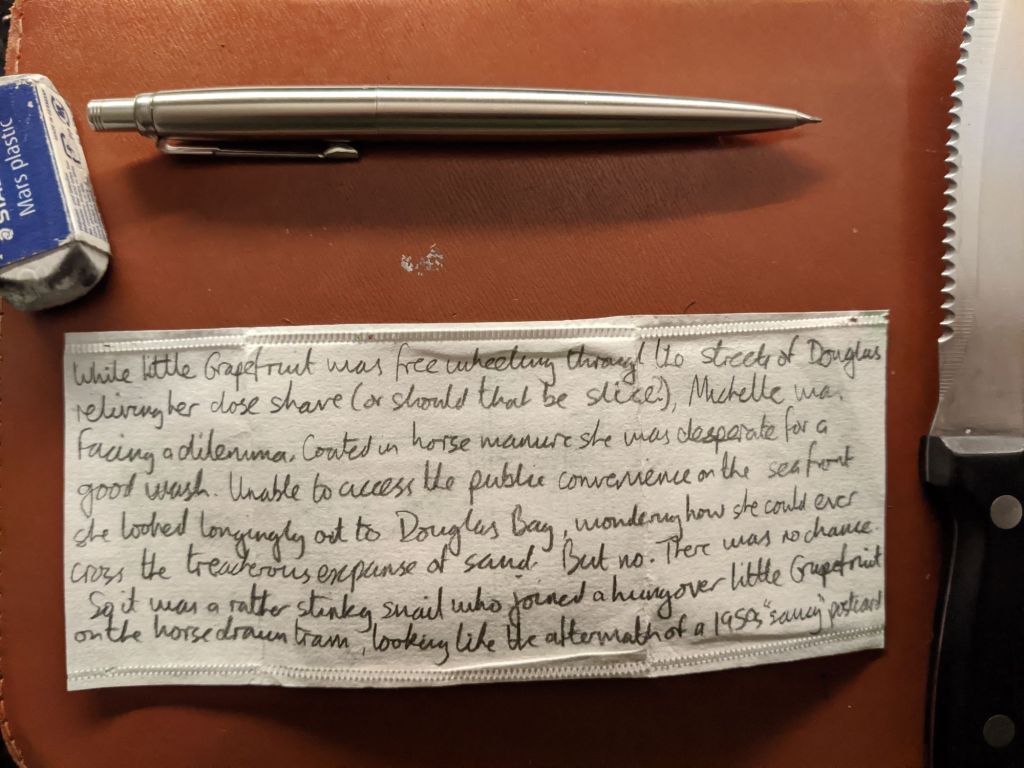 Mars plastic
While little Grapefruit was free wheeling through the streets of Douglas
reliving her close shave (or should that be slice?), Michelle was
facing a dilemma. Coated in horse manure she was desperate for a
good wash. Unable to access the public convenience on the seafront
she looked longingly out to Douglas Bay, wondering how she could ever
cross the treacerous expanse of sand. But no. There was no chance.
So it was a rather stinky snail who joined a hungover little Grapefruit
on the horsedrawn tram, looking like the aftermath of a 1950s "saucy" postcard